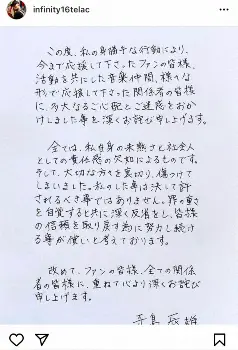 infinity16telac
この度、私の身勝手な行動により、
今まで応援して下さったファンの皆様、
活動を共にした音楽仲間、様々な
形で応援して下さった関係者の皆様
に、多大なるご心配とご迷惑をおか
けしました事を深くお詫び申し上げます。
全ては、私自身の未熟さと社会人
としての責任感の欠如によるものです。
そして、大切な方々を裏切り、傷つけて
しまいました。私のした事は決して許
されるべき事ではありません。罪の重さ
を自覚すると共に深く反省をし、皆様
の信頼を取り戻す為に努力し続け
る事が償いと考えております。
改めて、ファンの皆様、全ての関係
者の皆様に、重ねて心より深くお詫び
申し上げます。